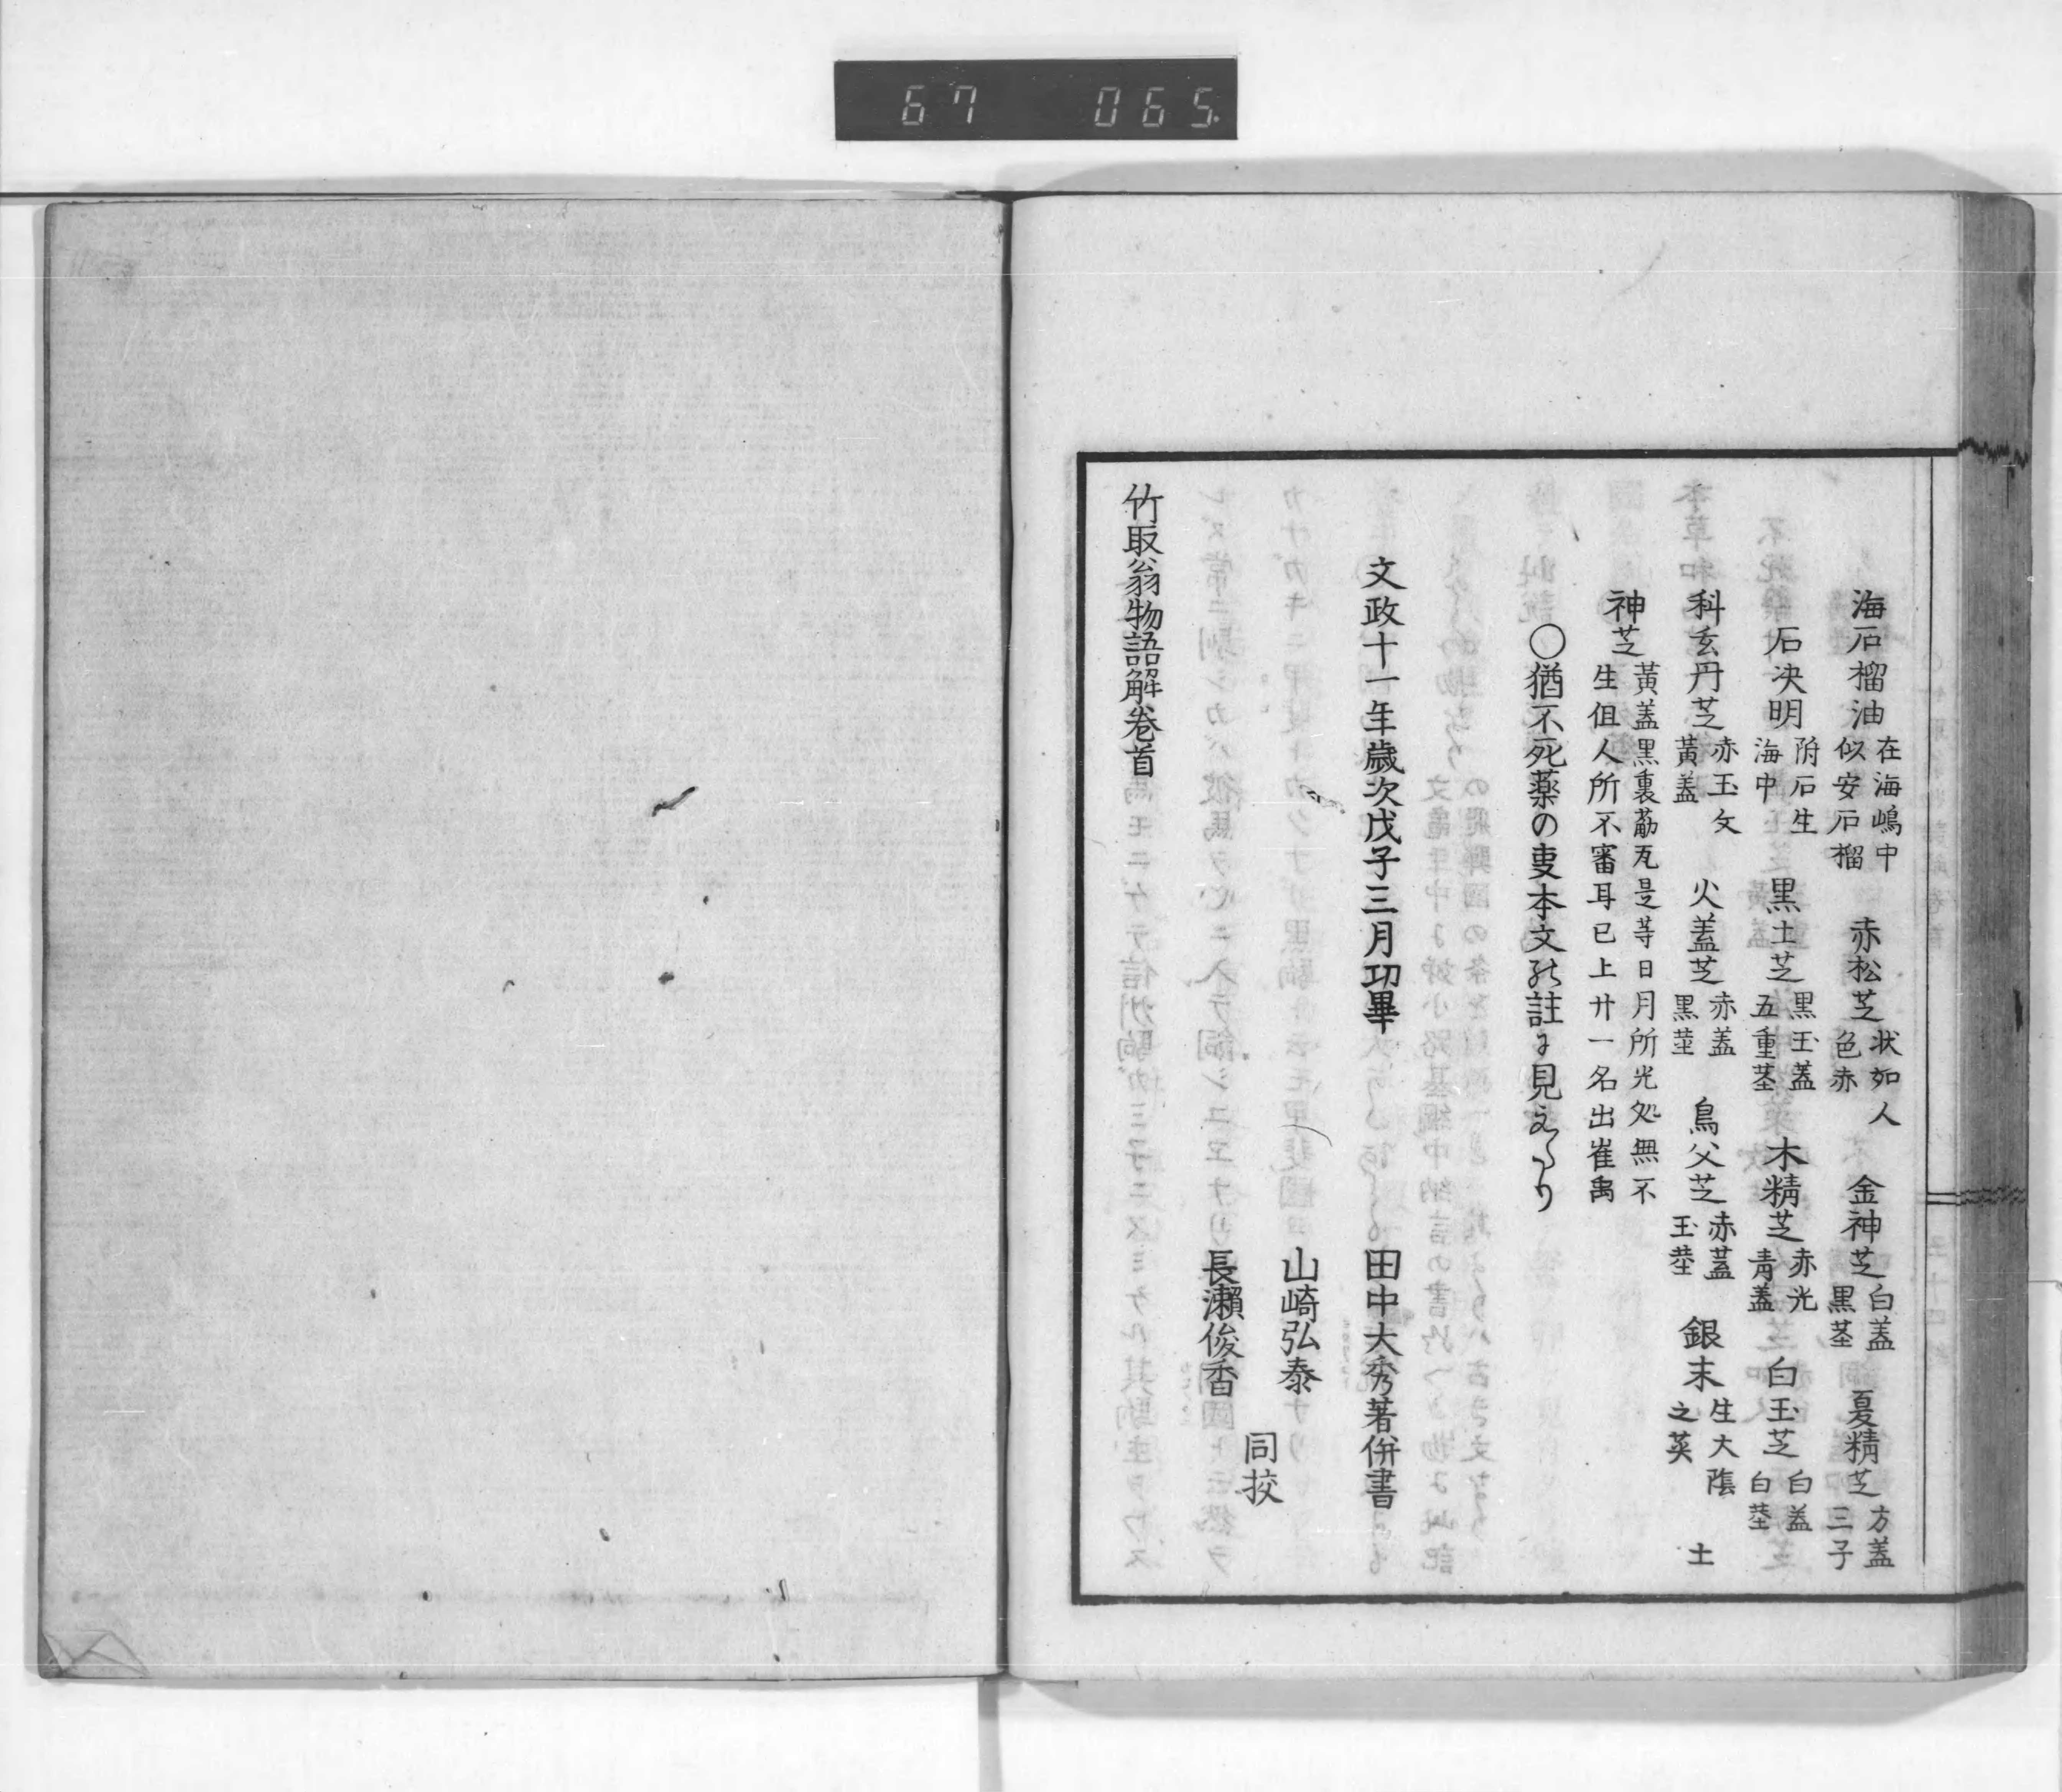 67 065
海石榴油 在海嶋中似安石榴 赤松芝 状如人色赤 金神芝 白蓋黒茎 夏精芝 方蓋三子
石决明 附石生海中 黒土芝 黒玉蓋五重茎 木精芝 赤光青蓋 白玉芝 白蓋白茎
科玄丹芝 赤玉文黄蓋 火蓋芝 赤蓋黒茎 鳥父芝 赤蓋玉茎 銀末 生大陰之英 土
神芝 黄蓋黒裏 是等日月所光処無不生但人所不審耳已上廿一名出崔禹
〇猶不死薬の叓本文の註に見えたり
文政十一年歳次戊子三月功畢
田中大秀著併書
山崎弘泰
長瀬俊香
同挍
竹取翁物語解卷首